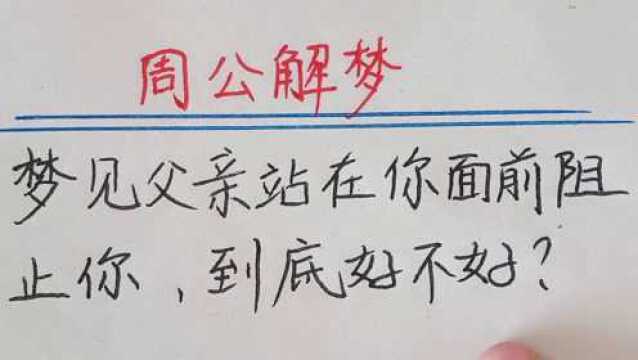 周公解梦
梦见父亲站在你面前阻
止你，到底好不好？